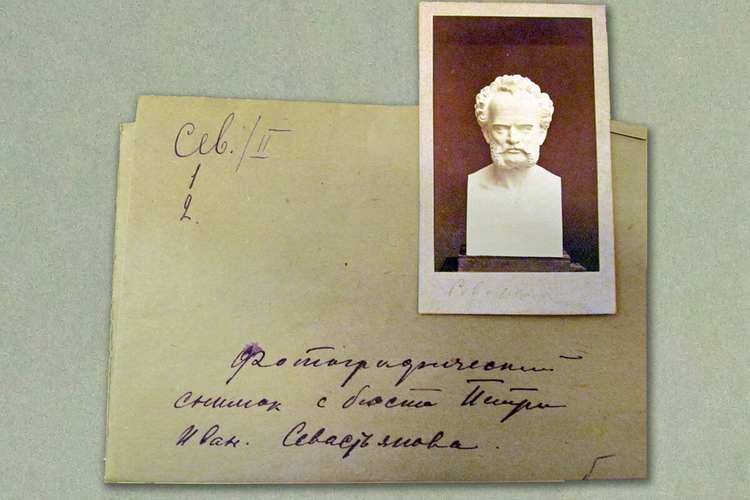 Сев./II
1
2.
Фотографический
снимок с бюста Петра
Иван. Севастьянова.